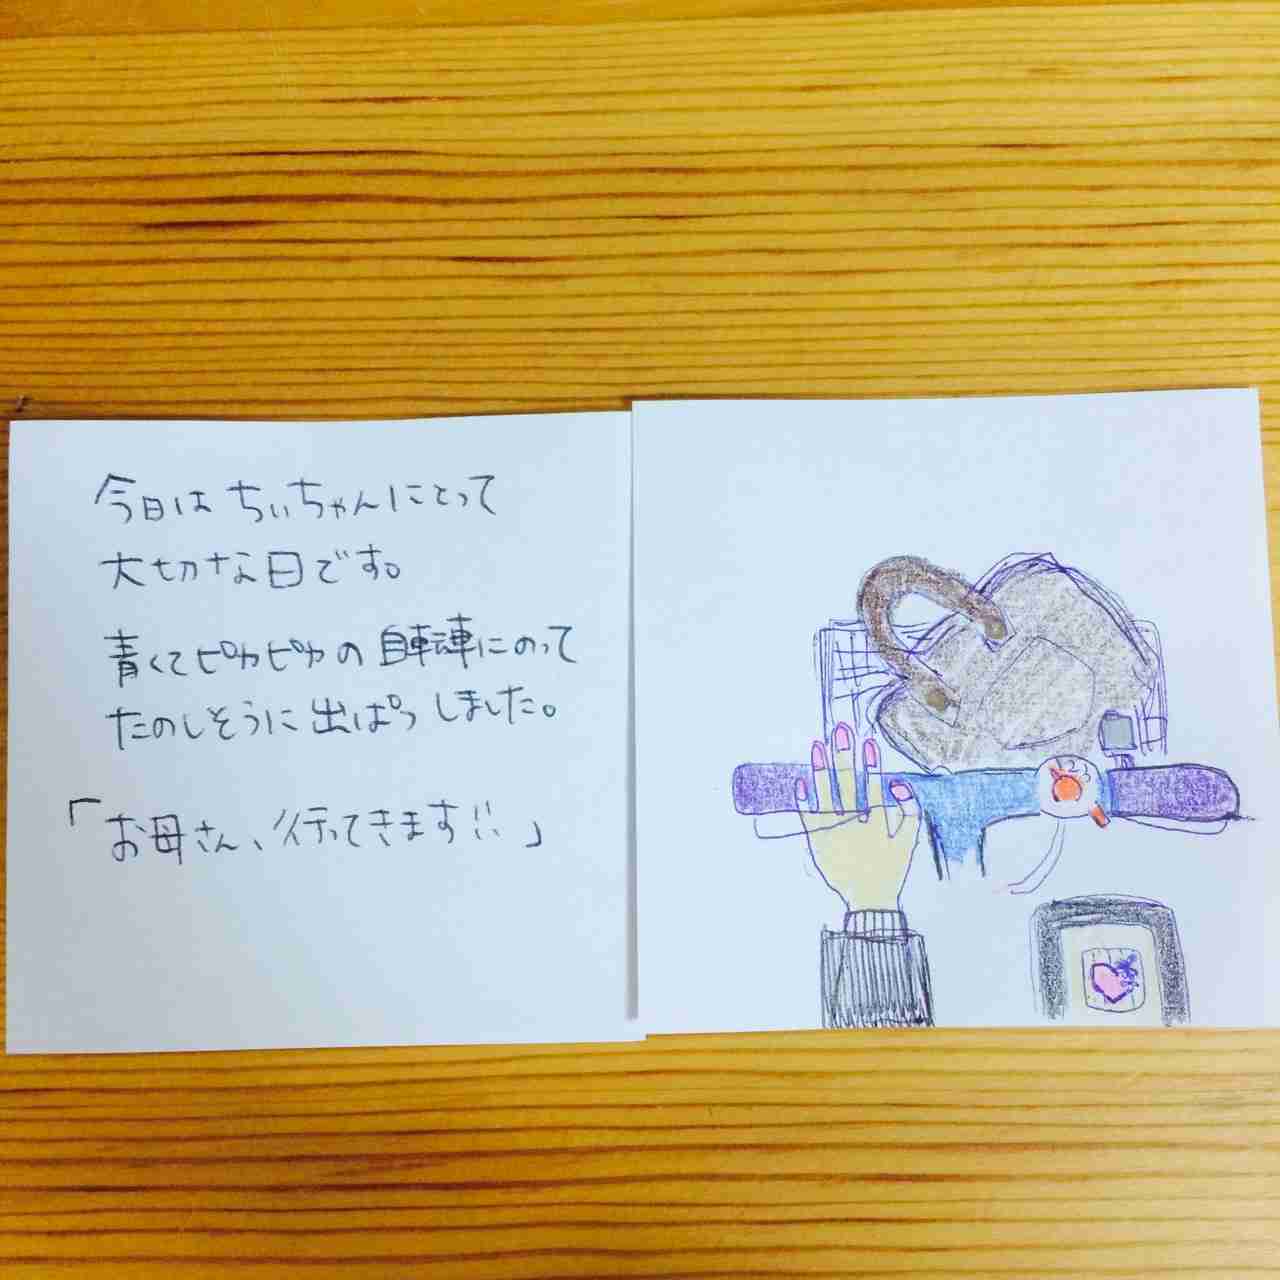 今日はちぃちゃんにとって
大切な日です。
青くてピカピカの自転車にのって
たのしそうに出ぱつしました。
「お母さん、行ってきます!!」